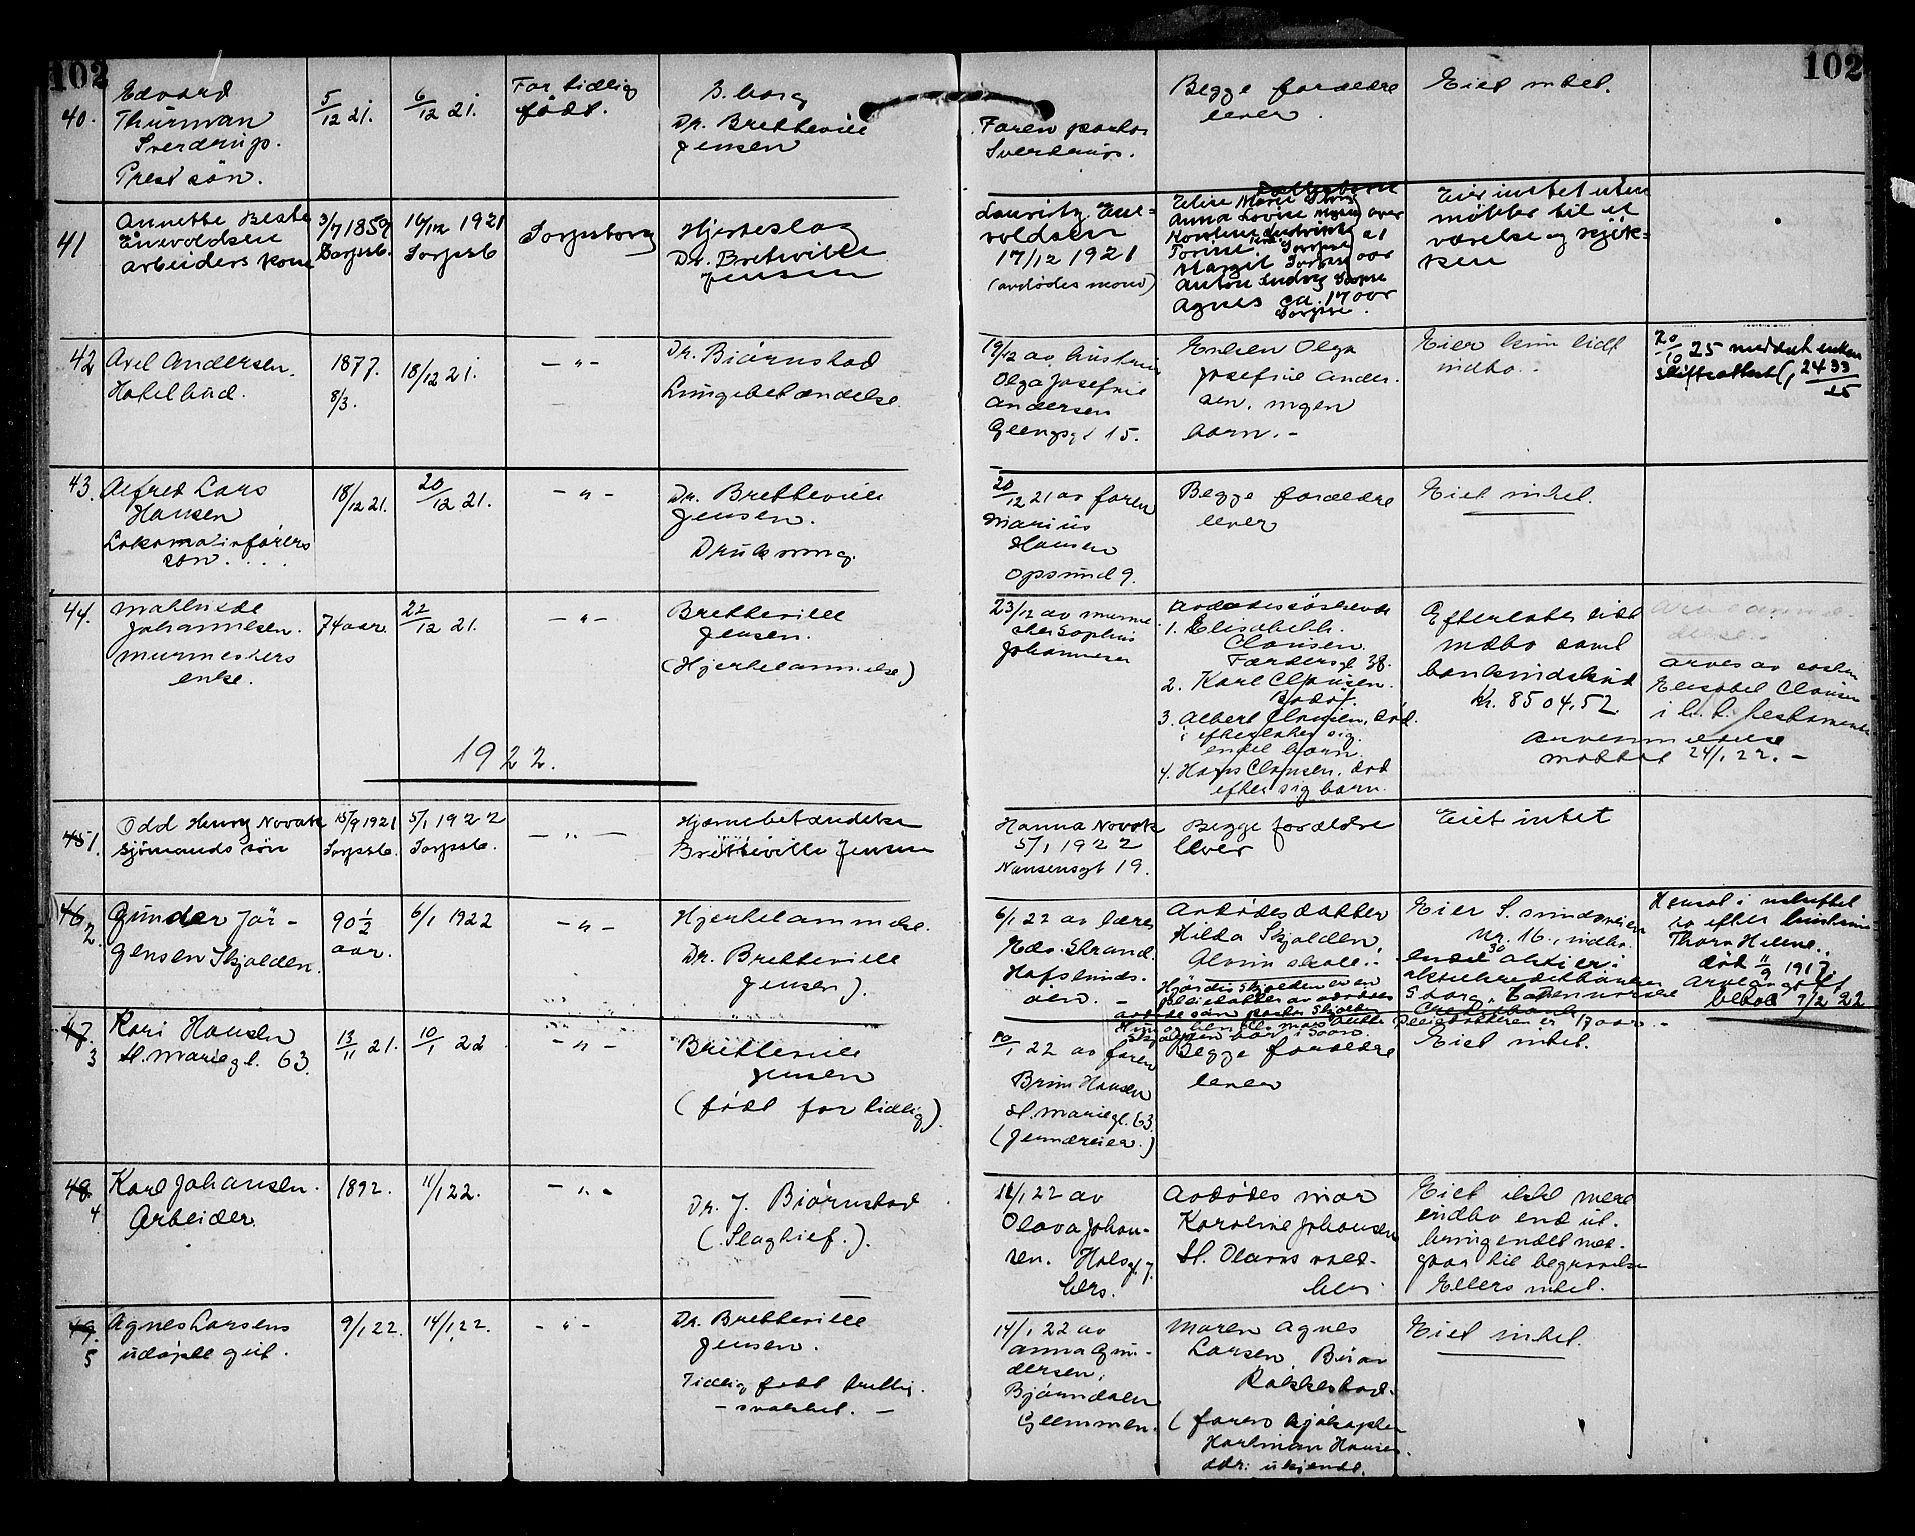 102
102
40.
Edvard
Thurman
Sverdrups.
Prest søn.
5/12 21.
6/12 21.
For tidlig
født.
S.borg
Dr. Bretteville
Jensen
Faren pastor
Sverdrup.
Begge forældre
lever
Eiet intet.
41
Annette Beate
Enevoldsen
arbeiders kone
3/7 1859
Sarpsb.
16/12 1921
Sarpsb
Sarpsborg
Hjerteslag
Dr. Bretteville
Jensen
Lauritz Ene-
voldsen
17/12 1921
(avdødes mand)
Elise Marie
Anna Lovise
over
21
Margit Sarpsb. aar
Anton Ludvig
Agnes ca. 17 aar
Sarpsb.
Eier intet uten
møbler til et
værelse og kjøk-
ken
42
Axel Andersen.
Hotelbud.
1877.
8/3.
18/12 21.
- " -
Dr. Bjørnstad
Lungebetændelse
19/12 av hustruen
Olga Josefine
Andersen
Glengsgt 15.
Enken Olga
Josefine Ander-
sen, ingen
barn. -
Eier kun lidt
indbo.
20/10 25 meddelt enken
skifteattest, 2433/25
43.
Alfred Lars
Hansen
Lokomotivførers
søn.
18/12 21.
20/12 21.
- " -
Dr. Bretteville
Jensen.
Drukning.
20/12 21 av faren
Marius
Hansen
Opsund 9.
Begge forældre
lever
Eiet intet.
44.
Mathilde
Johannesen.
murmesters
enke.
74 aar.
22/12 21.
- " -
Bretteville
Jensen.
(Hjertelammelse)
23/12 av murme
ster Sophus
Johannesen
Avdødes søskende
1. Elisabeth
Clausen
Færdersgt 38.
2. Karl Clausen.
Bodø.
3. Albert Clausen, død.
efterlater sig
endel barn
4. Hans Clausen, død
efter sig barn.
Efterlater lidt
indbo samt
bankindskud
kr. 8504,52
arves av søsteren
Elisabet Clausen
i h. t. testamente
mottat 24/1 22. -
1922.
45 1.
Odd Henry Novak
sjømands søn
15/9 1921
Sarpsb.
5/1 1922
Sarpsb.
- " -
Hjernebetændelse
Bretteville Jensen
Hanna Novak
5/1 1922
Nansensgt 19.
Begge forældre
lever
Eiet intet
46 2
Gunder Jør-
gensen Skjolden.
90 1/2
aar.
6/1 1922
- " -
Hjertelammelse.
Dr. Bretteville
Jensen).
6/1 22 av lærer
Edv. Strand.
Hafslunds-
øen. -
Avdødes datter
Hilda Skjolden,
Hjørdis Skjolden er en
pleiedatter av avdødes
Eier S. sundsveien
Nr. 16, indbo.
endel 30 aktier i
Pleiedatteren er 17 aar. -
Hensat i uskiftet
bo efter hustruen
Thora Helene.
død 11/9 1917.
Arveavgift
betalt 7/2 22
47. 3
Kari Hansen
St. Mariegt. 63.
13/11 21.
10/1 22
- " -
Bretteville
Jensen
(født for tidlig).
10/1 22 av faren
Brun Hansen
St. mariegt. 63.
Begge forældre
lever
Eiet intet.
48. 4
Karl Johansen.
Arbeider
1892.
11/1 22.
- " -
Dr. J. Bjørnstad
(Slaghief.).
11/1 22 av
Olava Johan-
sen. Halsgt 7.
hers.
Avdødes mor
Karoline Johansen
St. Olavs vold.
her
Eiet ikke mere
indbo end ut-
bringendet med-
gaar til begravelse
Ellers intet.
49. 5
Agnes Larsens
udøpte gut.
9/1 22.
14/1 22.
- " -
Dr. Bretteville
Jensen.
Tidlig født
svakhet. -
14/1 22 av
Anna Gun-
dersen,
Bjørndalen
Glemmen.
Moren Agnes
Larsen,
Rakkestad.
(faren
Hartman Hansen.
adr: ukjendt.
Eiet intet.